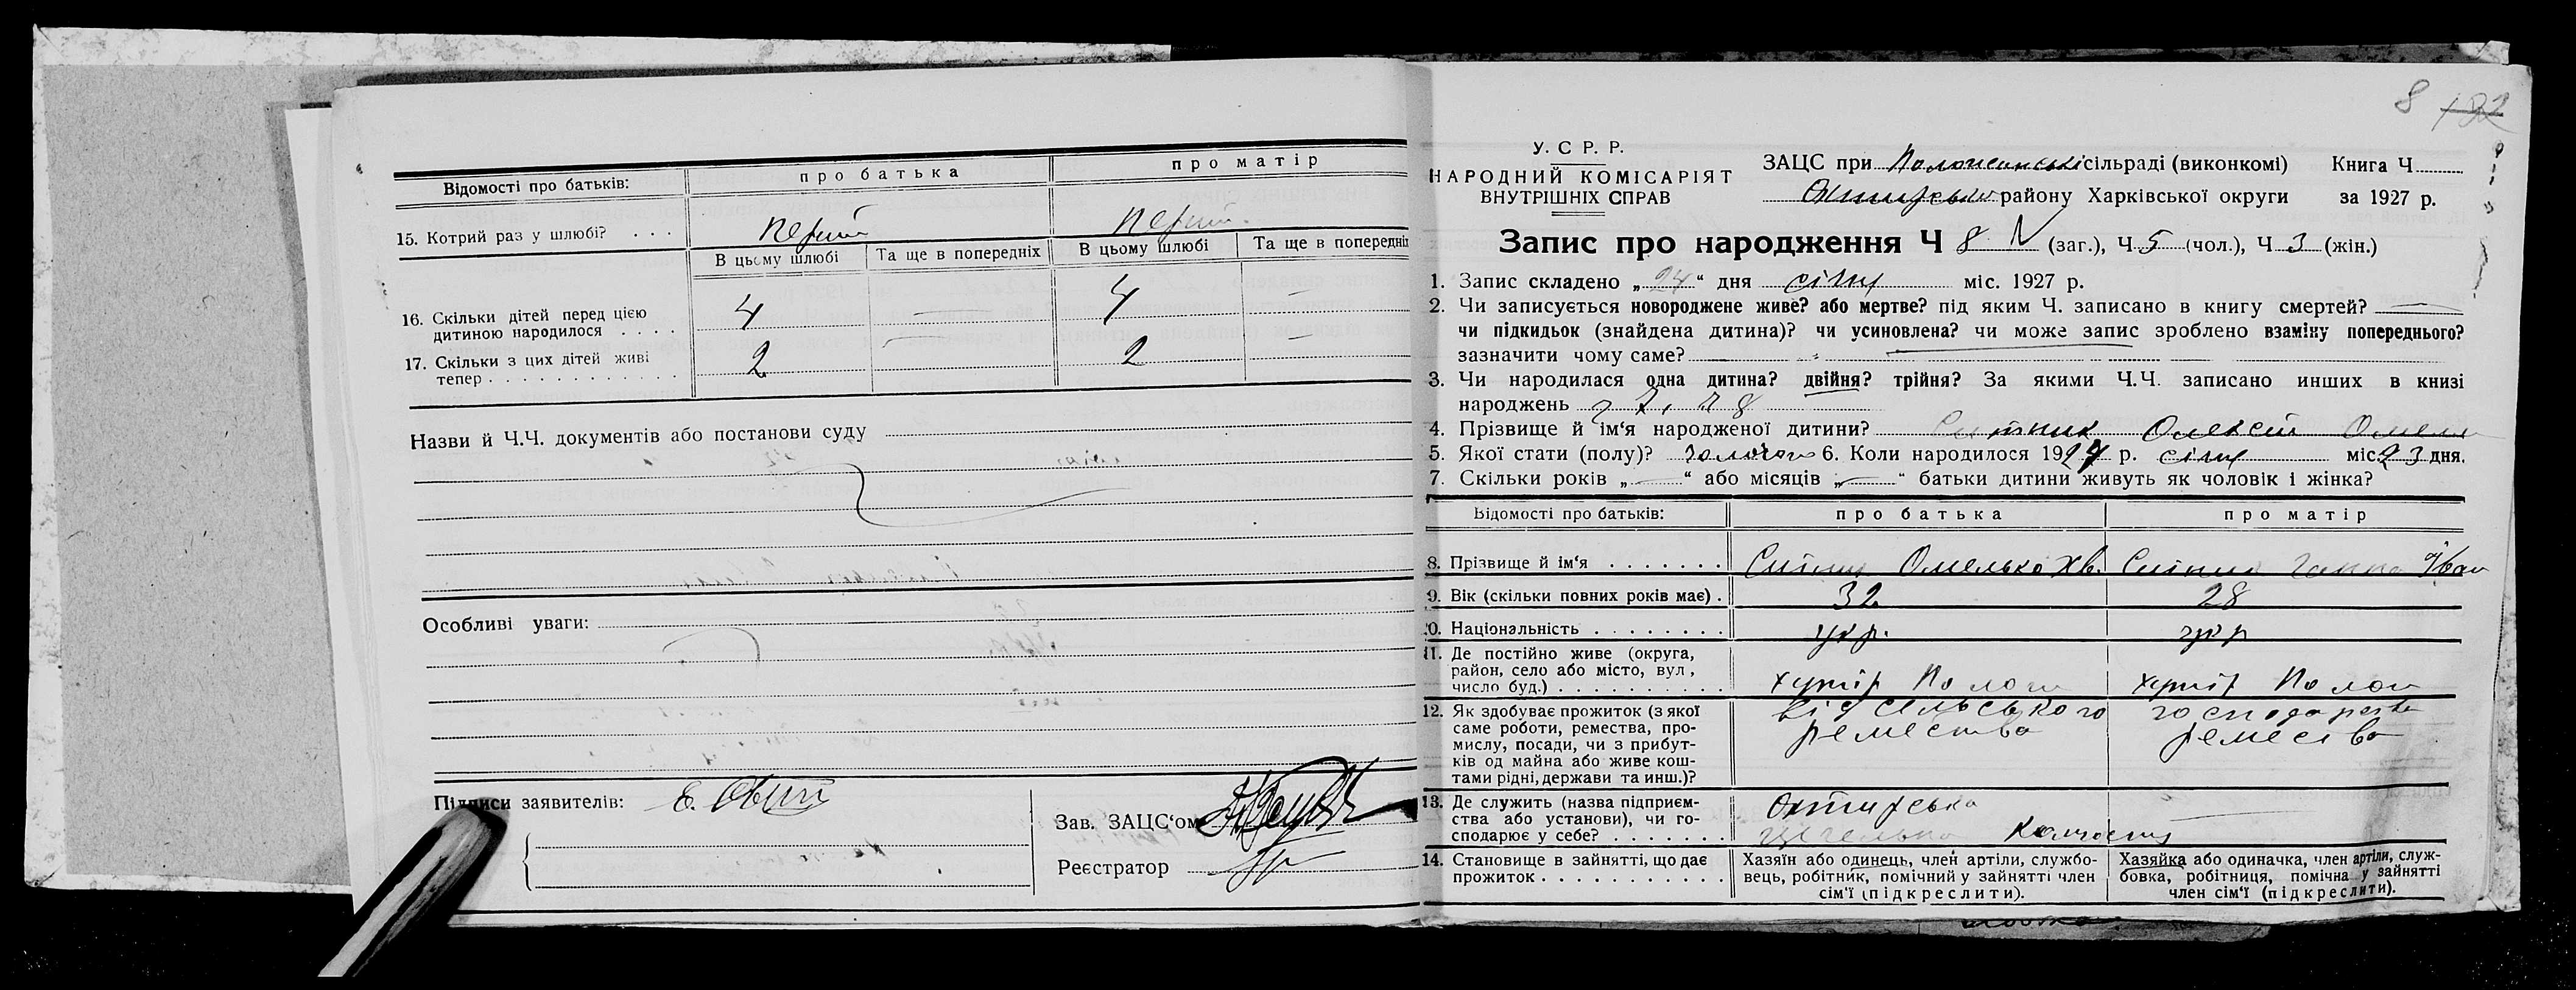 Відомості про батьків: про батька про матір
15. Котрий раз у шлюбі? . . . перший перший
В цьому шлюбі Та ще в попередніх В цьому шлюбі Та ще в попередніх
16. Скільки дітей перед цією
дитиною народилося . . . . 4 — 4 —
17. Скільки з цих дітей живі
тепер . . . . . . . . . . . . . 2 — 2 —
Назви й Ч.Ч. документів або постанови суду
Особливі уваги:
Підписи заявителів:
Зав. ЗАЦС'ом
Реєстратор
8 182
У. С. Р. Р.
НАРОДНИЙ КОМІСАРІЯТ
ВНУТРІШНІХ СПРАВ
ЗАЦС при сільраді (виконкомі) Книга Ч.
району Харківської округи за 1927 р.
Запис про народження Ч 8 (заг.), Ч. 5 (чол.), Ч 3 (жін.)
1. Запис складено „ 24 “ дня січня міс. 1927 р.
2. Чи записується новороджене живе? або мертве? під яким Ч. записано в книгу смертей? —
чи підкидьок (знайдена дитина)? чи усиновлена? чи може запис зроблено взаміну попереднього?
зазначити чому саме?
3. Чи народилася одна дитина? двійня? трійня? За якими Ч.Ч. записано инших в книзі
народжень
4. Прізвище й ім'я народженої дитини? Ситник Олексій Омел
5. Якої стати (полу)? 6. Коли народилося 1927 р. січня міс. 23 дня.
7. Скільки років „ — “ або місяців „ — “ батьки дитини живуть як чоловік і жінка?
Відомості про батьків: про батька про матір
8. Прізвище й ім'я . . . . . . . Ситник Омелько Хв. Ситник Ганна Іван
9. Вік (скільки повних років має) . 32 28
10. Національність . . . . . . . . укр. укр
11. Де постійно живе (округа,
район, село або місто, вул,
число буд.) . . . . . . . . . . хутір хутір
12. Як здобуває прожиток (з якої від сільського господарства
саме роботи, ремества, про- ремества ремества
мислу, посади, чи з прибут-
ків од майна або живе кош-
тами рідні, держави та инш.)?
13. Де служить (назва підприєм- Охтирська
ства або установи), чи го-
сподарює у себе? . . . . . . .
14. Становище в зайнятті, що дає
прожиток . . . . . . . . . . .
Хазяїн або одинець, член артіли, службо-
вець, робітник, помічний у зайнятті член
сім'ї (підкреслити).
Хазяйка або одиначка, член артіли, служ-
бовка, робітниця, помічна у зайнятті
член сім'ї (підкреслити).